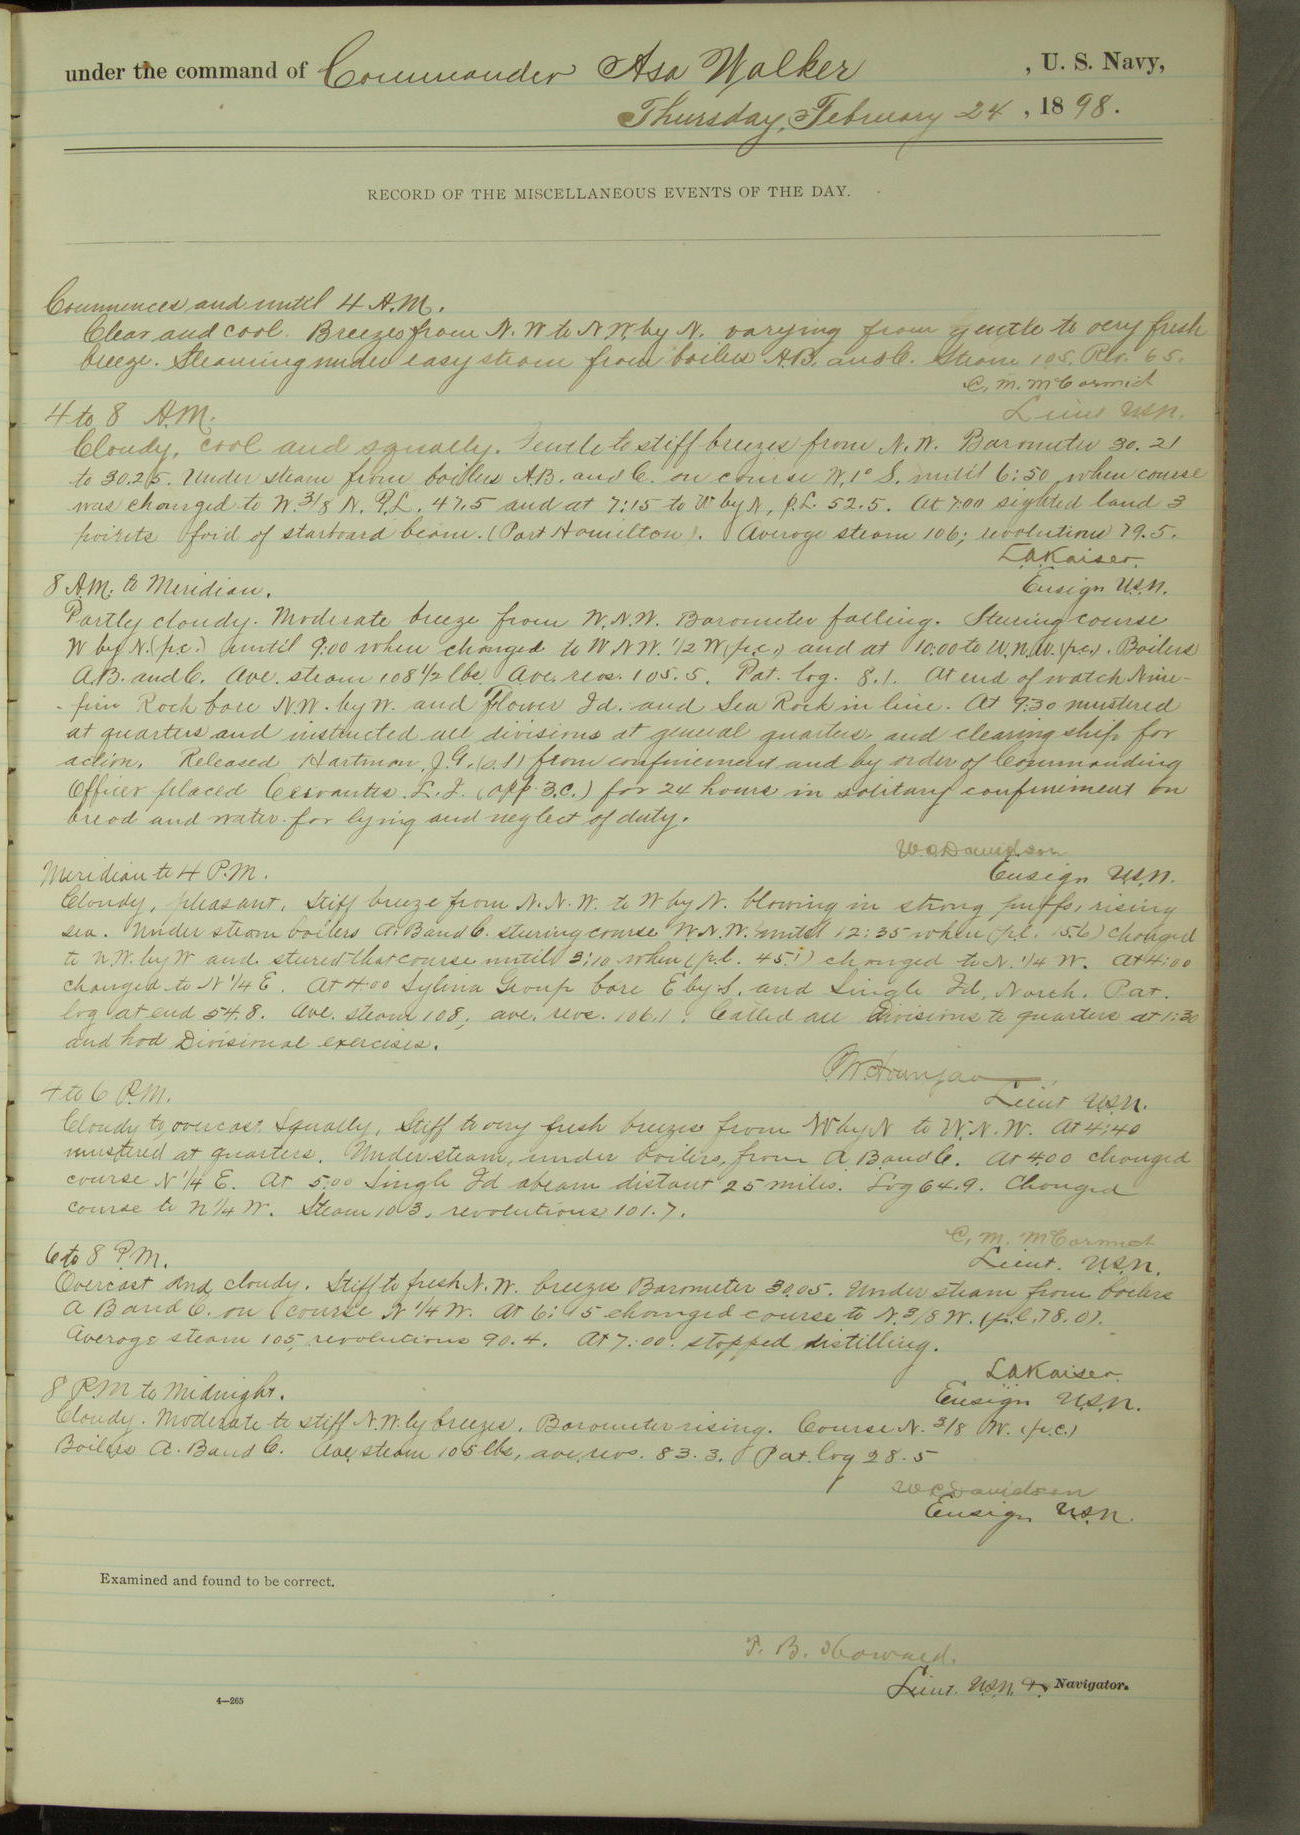 under the command of Commander Asa Walker , U. S. Navy,
Thursday, February 24 , 1898.
RECORD OF THE MISCELLANEOUS EVENTS OF THE DAY.
Commences and until 4 A.M.
Clear and cool. Breezes from N.W. to N.W. by N. varying from gentle to very fresh
breeze. Steaming under easy steam from boilers A.B. and C. Steam 105. Rev. 65.
C. M. McCormick
Lieut USN.
4 to 8 A.M.
Cloudy, cool and squally. Gentle to stiff breezes from N.W. Barometer 30.21
to 30.25. Under steam from boilers A.B. and C. on course W. 1° S. until 6:50 when course
was changed to W. 3/8 N. P.L. 47.5 and at 7:15 to W by N, p.L. 52.5. At 7:00 sighted land 3
points for'd of starboard beam. (Port Hamilton). Average steam 106; revolutions 79.5.
L.A. Kaiser.
Ensign U.S.N.
8 A.M. to Meridian.
Partly cloudy. Moderate breeze from W.N.W. Barometer falling. Steering course
W by N. (p.c.) until 9:00 when changed to W N W. 1/2 W (p.c.) and at 10:00 to W.N.W. (p.c.). Boilers
A.B. and C. Ave. steam 108 1/2 lbs. Ave. revs. 105.5. Pat. log. 8.1. At end of watch Nine-
pin Rock bore N.W. by W. and Flower Id. and Sea Rock in line. At 9:30 mustered
at quarters and instructed all divisions at general quarters and clearing ship for
action. Released Hartman, J.G. (s.1) from confinement and by order of Commanding
Officer placed Cervantes. L. J. (app. 3.c.) for 24 hours in solitary confinement on
bread and water for lying and neglect of duty.
W.C. Davidson
Ensign U.S.N.
Meridian to 4 P.M.
Cloudy, pleasant. Stiff breeze from N.N.W. to W by N. blowing in strong puffs, rising
sea. Under steam boilers A. B and C. steering course W.N.W. until 12:35 when (p.l. 15.6) changed
to N.W. by W and steered that course until 3:10 when (p.l. 45.1) changed to N. 1/4 W. At 4:00
changed to N 1/4 E. At 4:00 Sylvia Group bore E by S. and Single Id, North. Pat.
log at end 54.8. Ave. steam 108; ave. revs. 106.1. Called all divisions to quarters at 1:30
and had Divisional exercises.
Lieut U.S.N.
4 to 6 P.M.
Cloudy to overcast. Squally, Stiff to very fresh breezes from NW by N to W.N.W. At 4:40
mustered at quarters. Under steam, under boilers, from A B and C. At 4:00 changed
course N 1/4 E. At 5:00 Single Id abeam distant 25 miles. Log 64.9. Changed
course to N 1/4 W. Steam 103, revolutions 101.7.
C. M. McCormick
Lieut. U.S.N.
6 to 8 P.M.
Overcast and cloudy. Stiff to fresh N.W. breezes Barometer 30.05. Under steam from boilers
A B and C. on course N 1/4 W. At 6:15 changed course to N. 3/8 W. (p.l. 78.0).
Average steam 105, revolutions 90.4. At 7:00 stopped distilling.
L.A. Kaiser.
Ensign U.S.N.
8 P.M to Midnight.
Cloudy. Moderate to stiff N.W.ly breezes. Barometer rising. Course N. 3/8 W. (p.c.)
Boilers A. B and C. Ave steam 105 lbs, ave, revs. 83.3. Pat. log 28.5
W C Davidson
Ensign U.S.N.
Examined and found to be correct.
T. B. Howard.
Lieut. U.S.N. & Navigator.
4—265